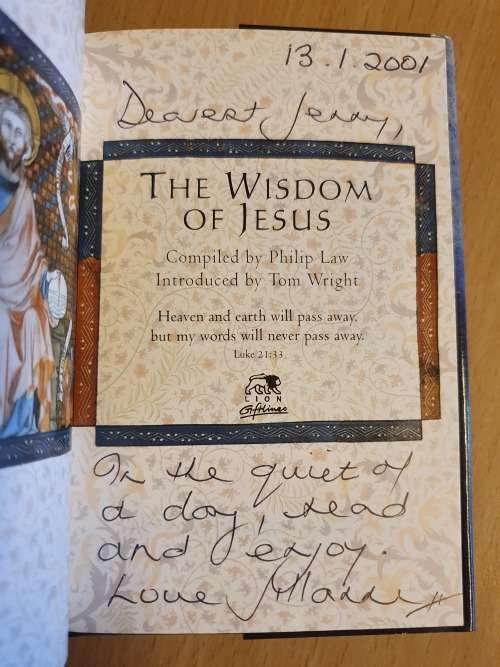 13.1.2001
Dearest Jenny,
THE WISDOM
OF JESUS
Compiled by Philip Law
Introduced by Tom Wright
Heaven and earth will pass away,
but my words will never pass away.
Luke 21:33
LION
Giftlines
In the quiet of
a day, read
and enjoy.
Love